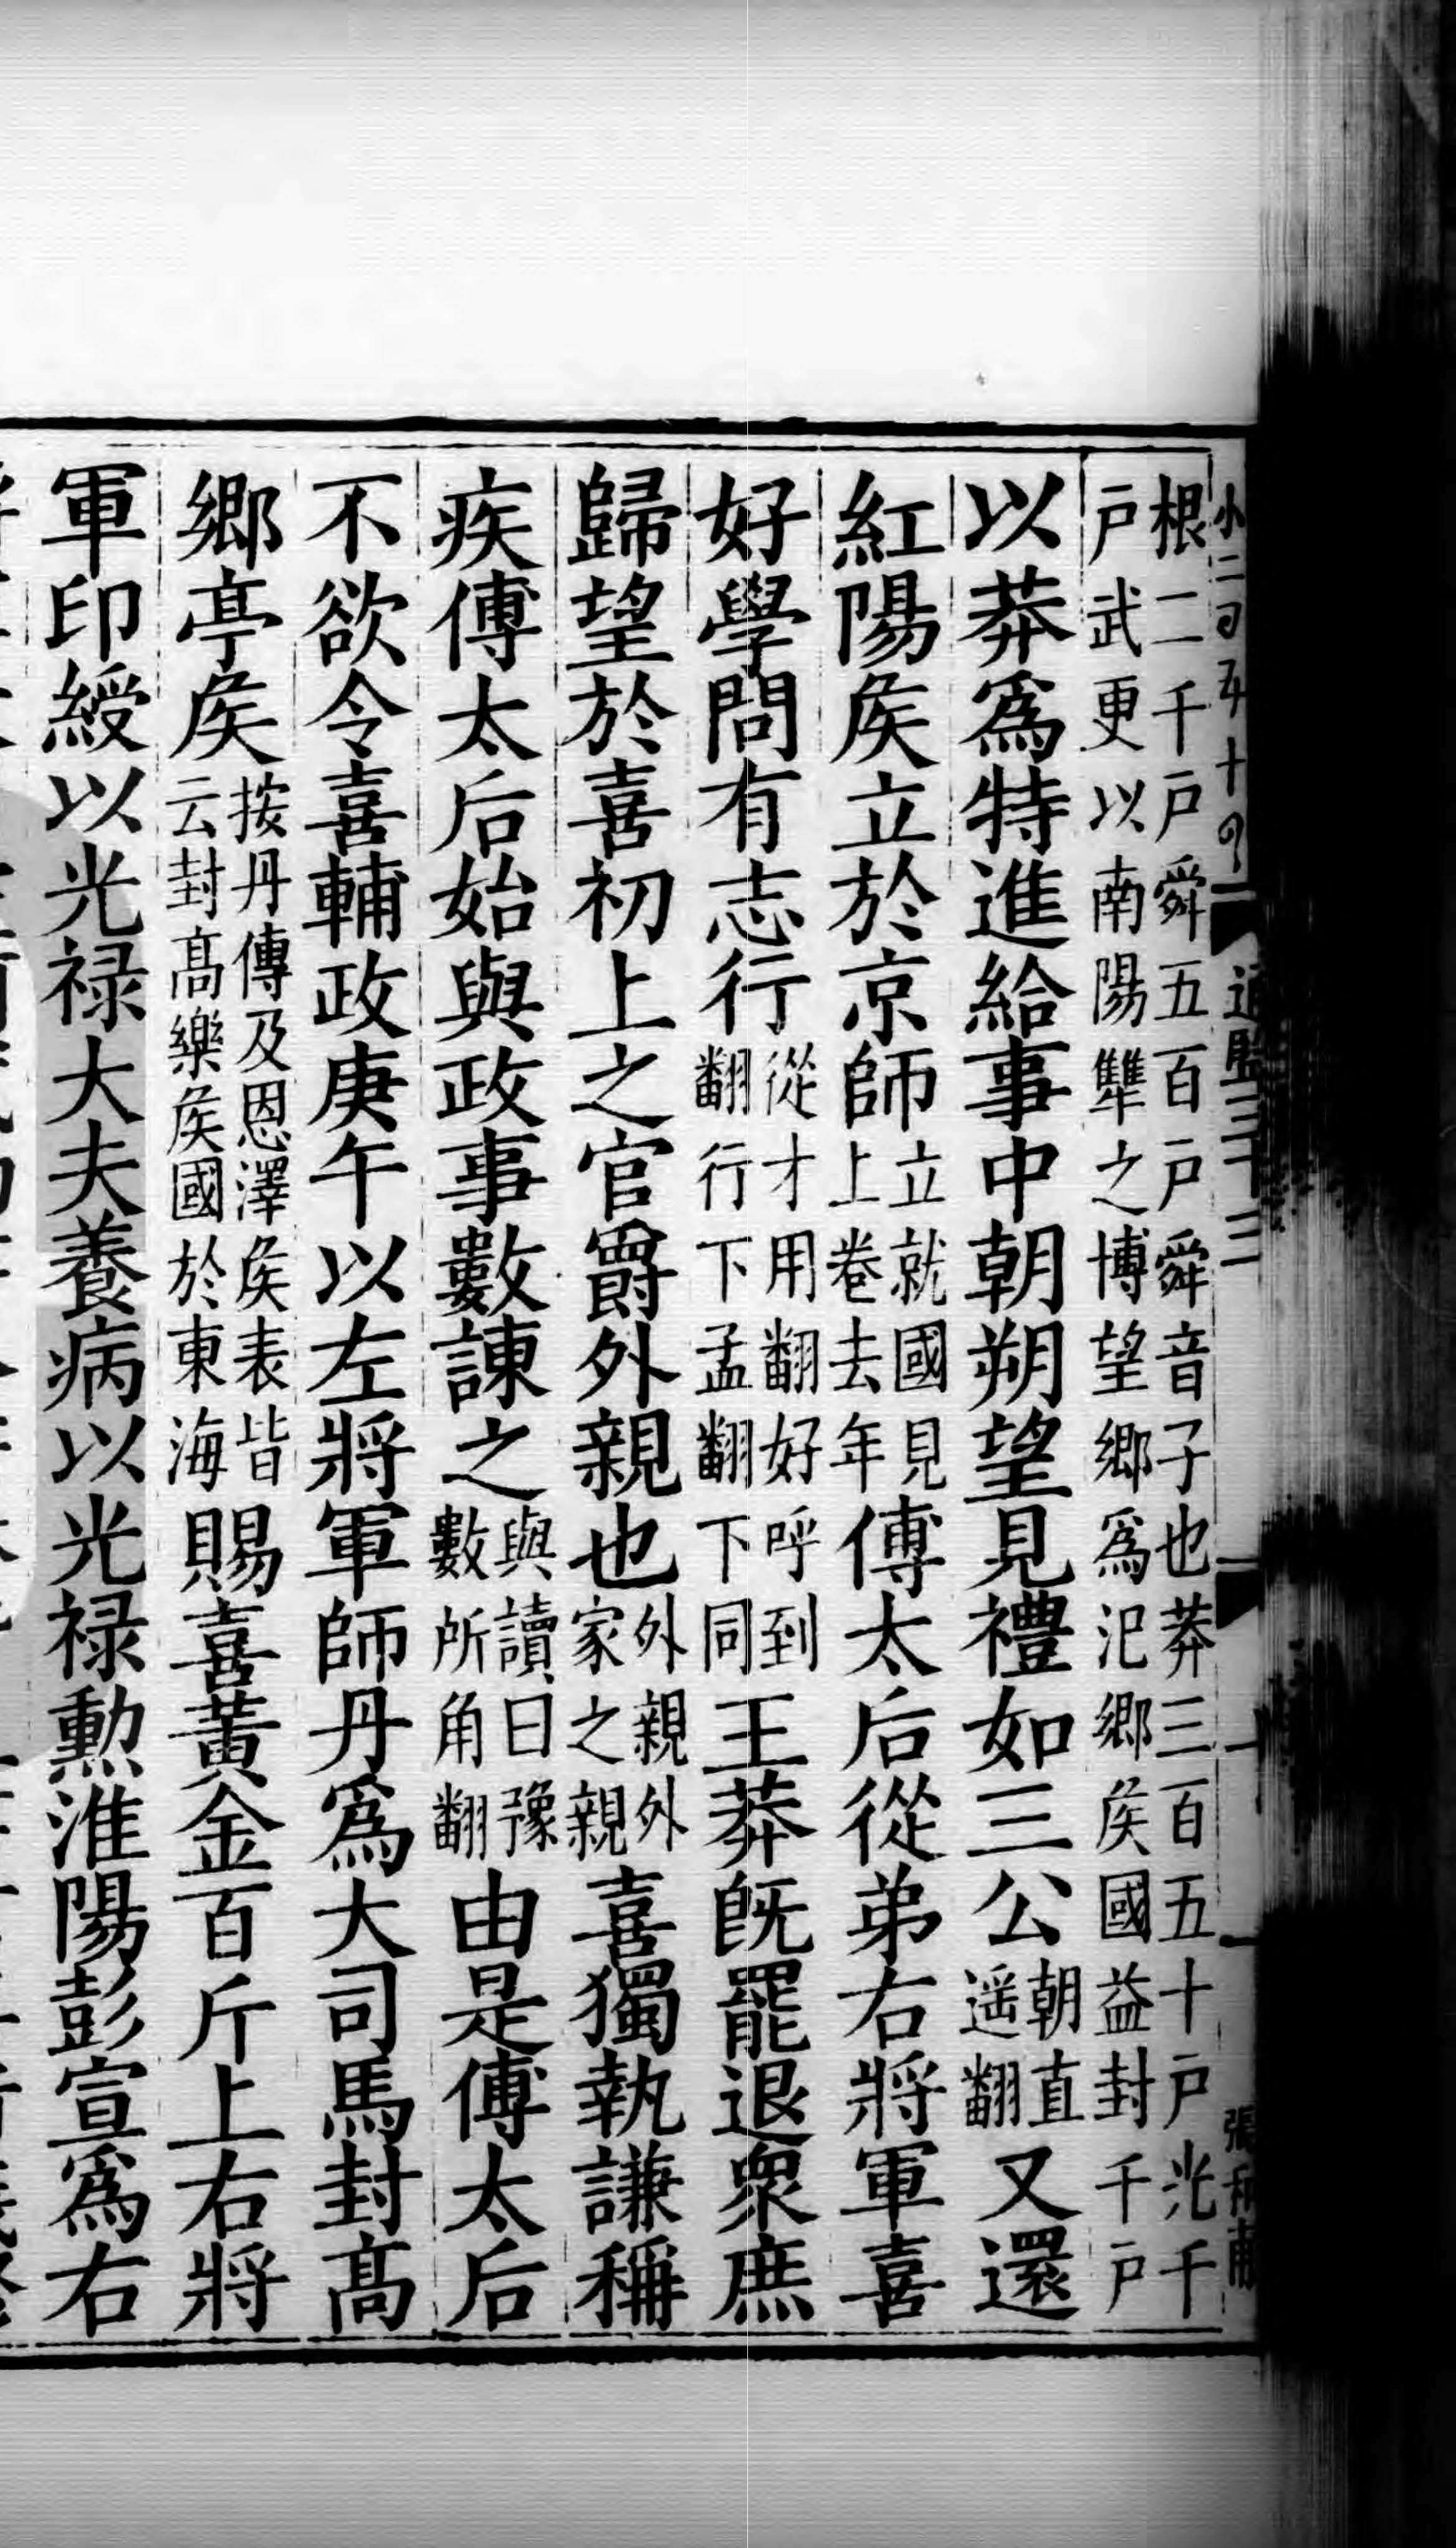 根二千戶舜五百戶舜音子也莽三百五十戶光千
戶武更以南陽犨之博望鄉爲氾鄉矦國益封千戶
以莽爲特進給事中朝朔望見禮如三公朝直遥翻又還
紅陽矦立於京師立就國見上卷去年傅太后從弟右將軍喜
好學問有志行從才用翻好呼到翻行下孟翻下同王莽旣罷退衆庶
歸望於喜初上之官爵外親也外親外家之親喜獨執謙稱
疾傅太后始與政事數諫之與讀曰豫數所角翻由是傅太后
不欲令喜輔政庚午以左將軍師丹爲大司馬封高
鄉亭矦按丹傳及恩澤矦表皆云封高樂矦國於東海賜喜黃金百斤上右將
軍印綬以光禄大夫養病以光禄勲淮陽彭宣爲右